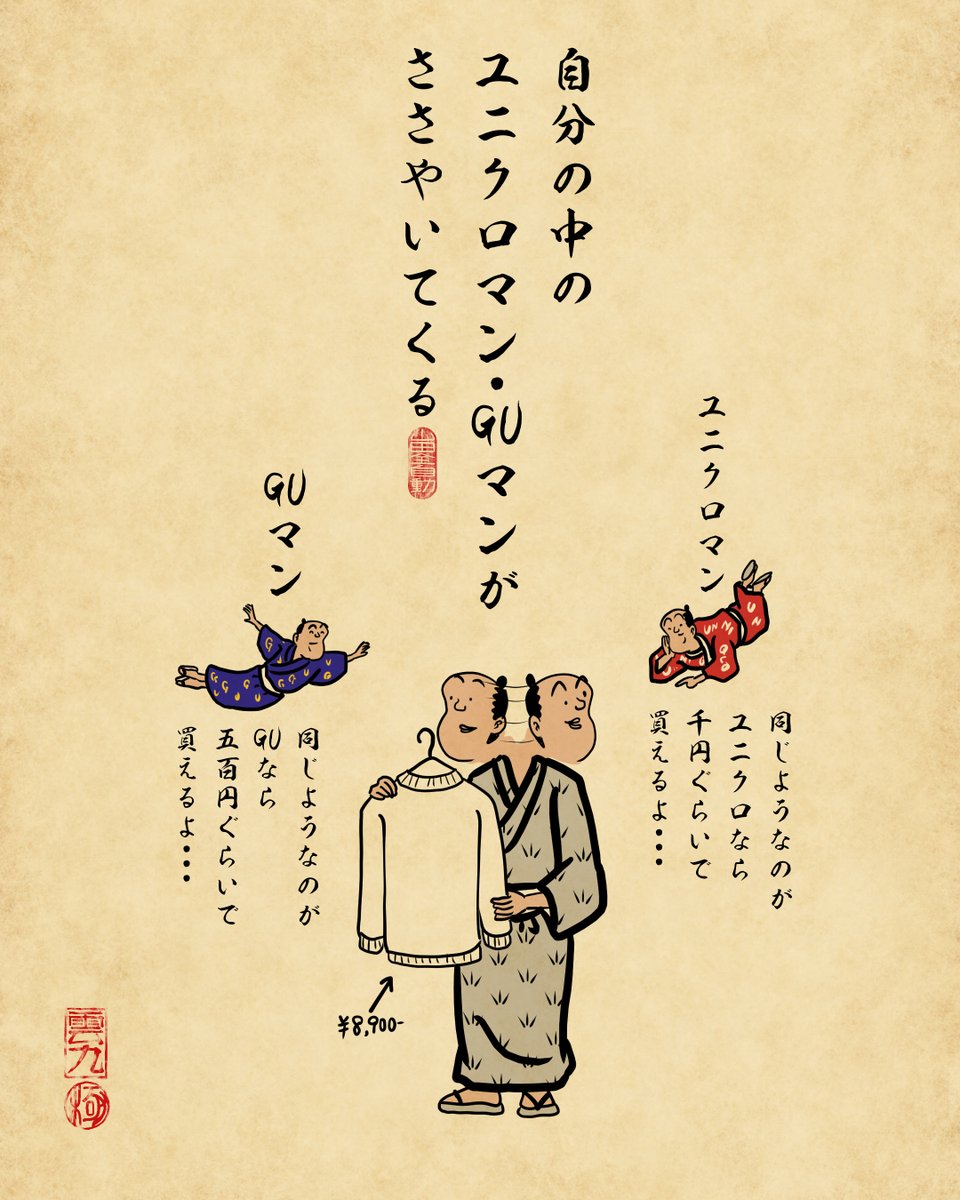 自分の中の
ユニクロマン・GUマンが
ささやいてくる
ユニクロマン
同じようなのが
ユニクロなら
千円ぐらいで
買えるよ・・・
GUマン
同じようなのが
GUなら
五百円ぐらいで
買えるよ・・・
¥8,900-